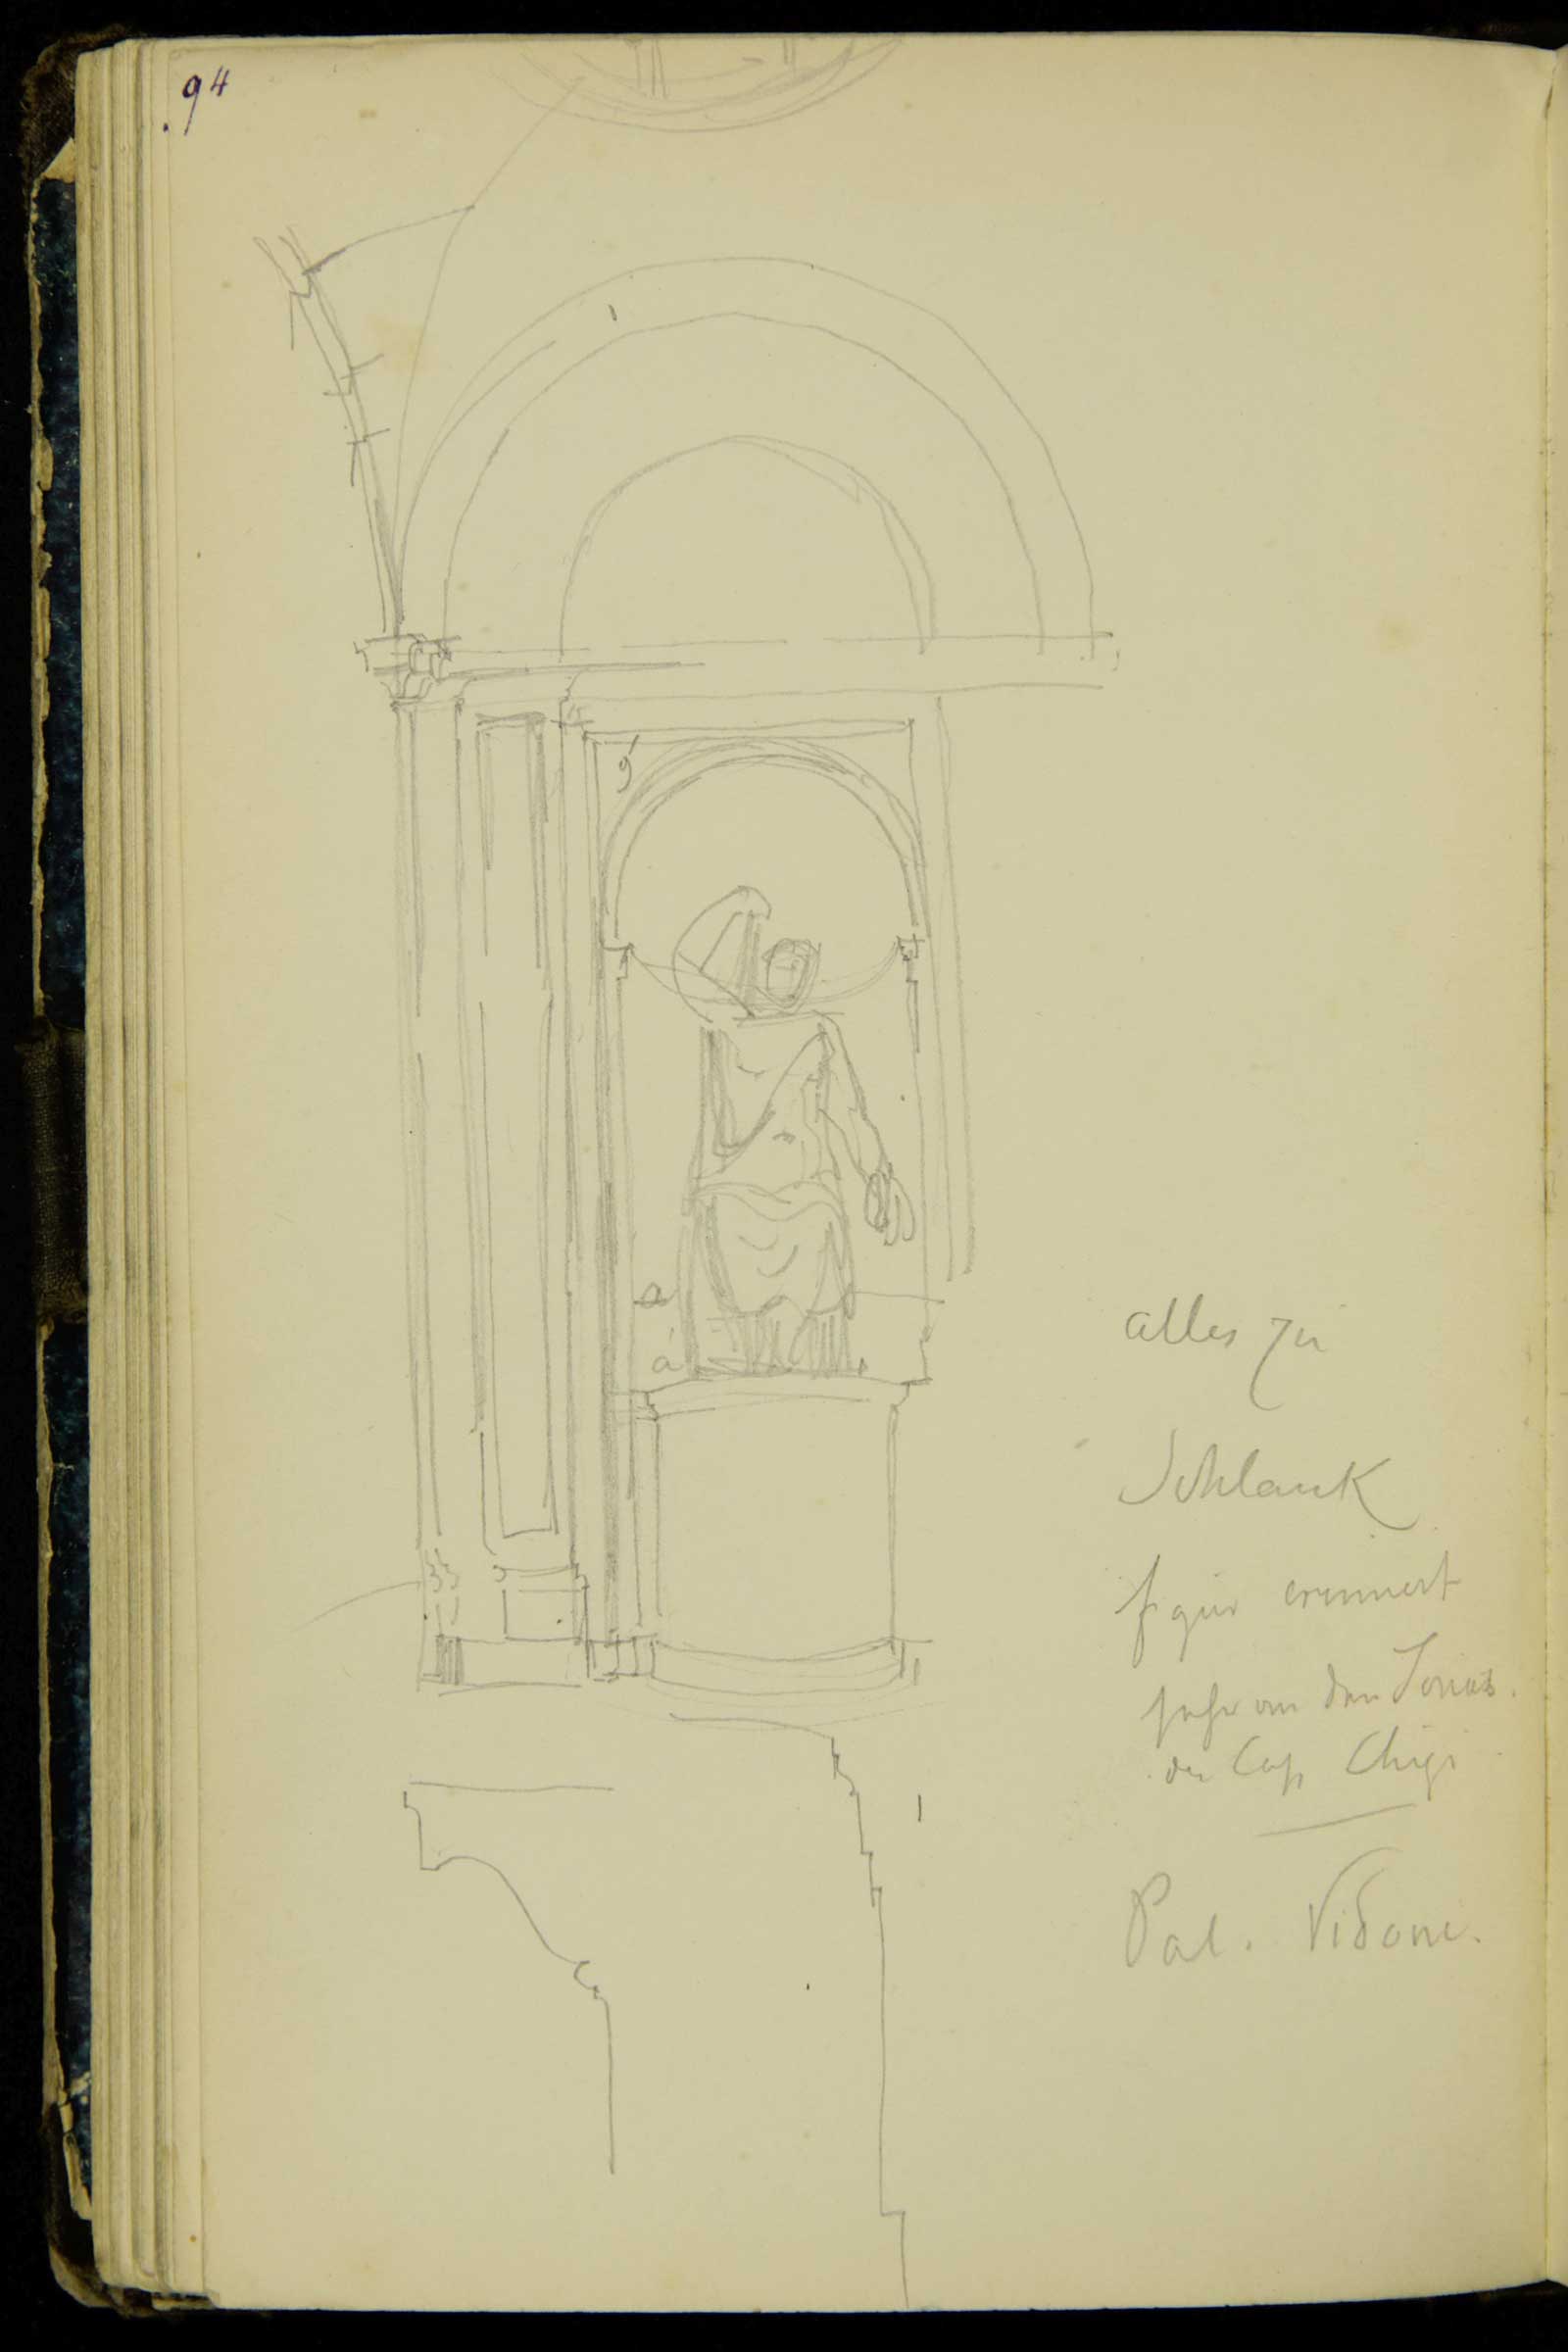 94
9'
a
a'
alles zu
Schlank
figur erinnert
sehr an den Jonas.
der Cap Chigi
Pal. Vidoni.